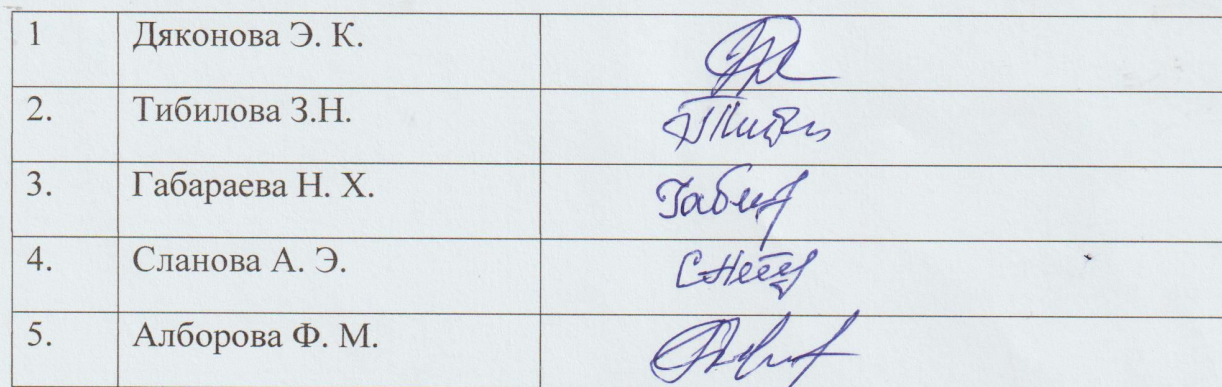 1 Дяконова Э. К.
2. Тибилова З.Н.
3. Габараева Н. Х.
4. Сланова А. Э.
5. Алборова Ф. М.